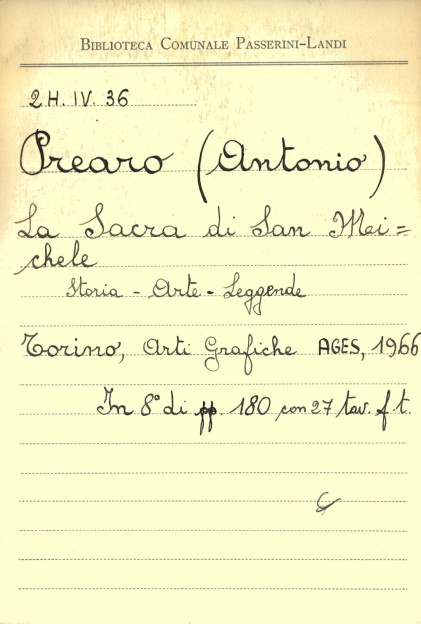 BIBLIOTECA COMUNALE PASSERINI-LANDI
2 H. IV. 36
Prearo (Antonio)
La Sacra di San Mei=
chele
Storia - Arte - Leggende
Torino, Arti Grafiche AGES, 1966
In 8° di pp. 180 con 27 tav. f. t.